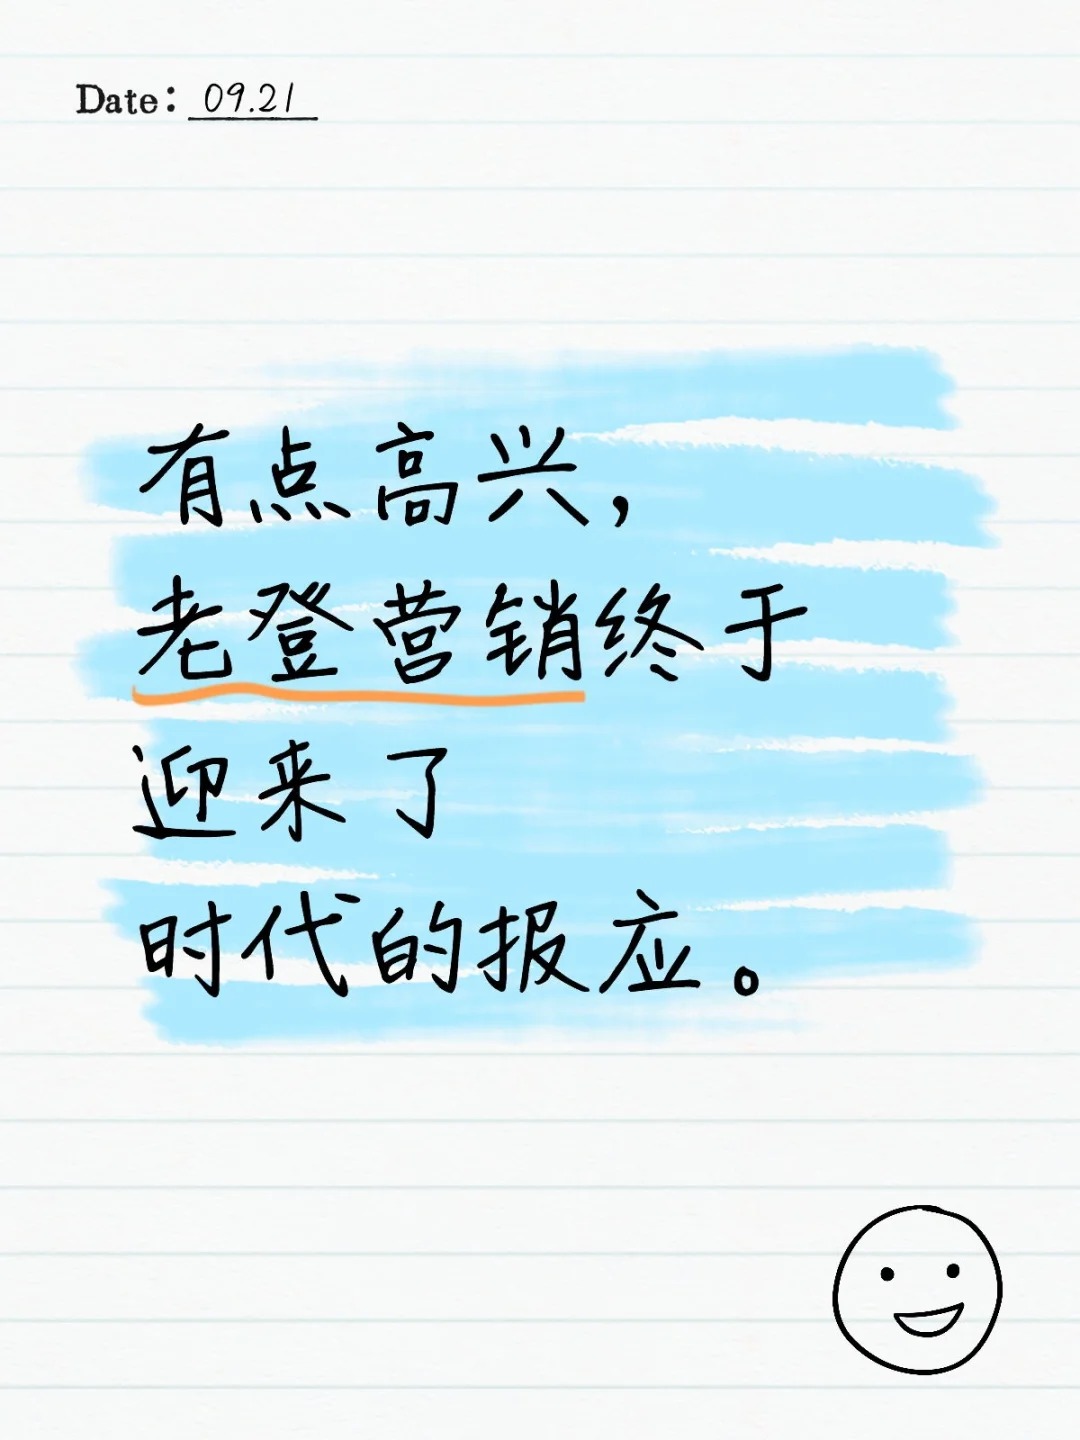 Date: 09.21
有点高兴，
老登营销终于
迎来了
时代的报应。